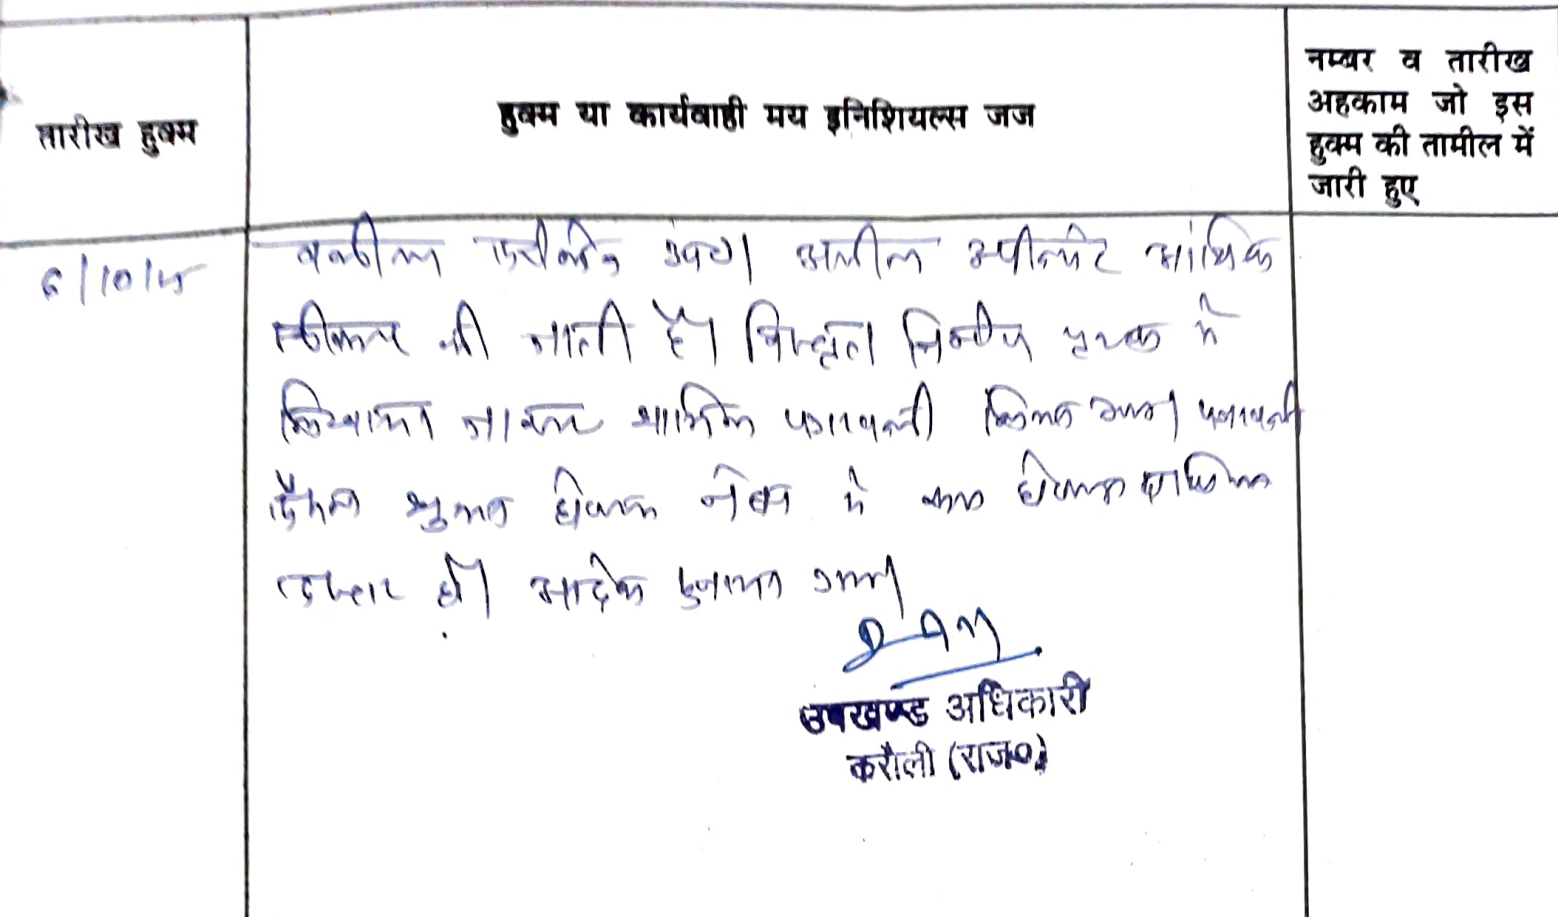 तारीख हुक्म
हुक्म या कार्यवाही मय इनिशियल्स जज
नम्बर व तारीख
अहकाम जो इस
हुक्म की तामील में
जारी हुए
6/10/15
वकील फरीकैन उप०। अपील अपीलांट आंशिक
स्वीकार की जाती है। विस्तृत निर्णय पृथक से
लिखाया जाकर शामिल पत्रावली किया गया। पत्रावली
फैसल शुमार होकर नम्बर से कम होकर दाखिल
दफ्तर हो। आदेश सुनाया गया।
उपखण्ड अधिकारी
करौली (राज०)